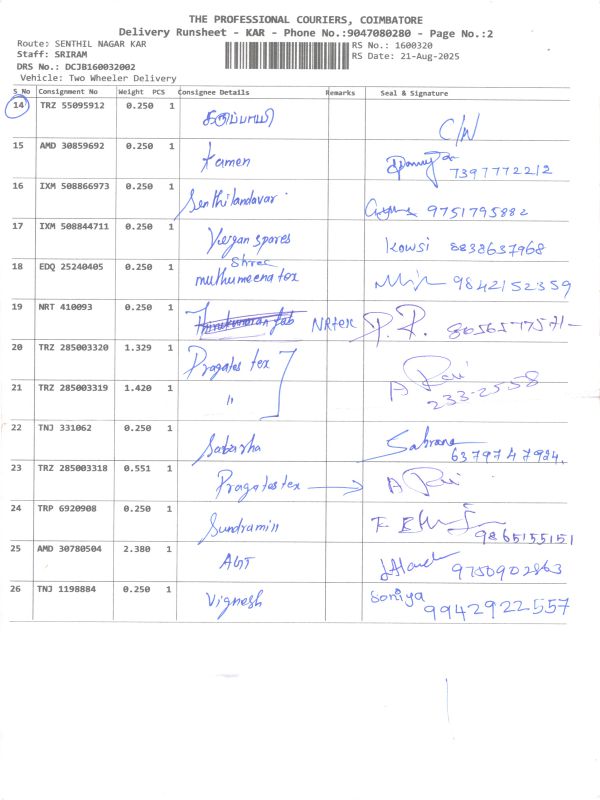 THE PROFESSIONAL COURIERS, COIMBATORE
Delivery Runsheet - KAR - Phone No.:9047080280 - Page No.:2
Route: SENTHIL NAGAR KAR RS No.: 1600320
Staff: SRIRAM RS Date: 21-Aug-2025
DRS No.: DCJB160032002
Vehicle: Two Wheeler Delivery
S_No Consignment No Weight PCS Consignee Details Remarks Seal & Signature
14 TRZ 55095912 0.250 1 கருப்பாயி C/W
15 AMD 30859692 0.250 1 tamen 7397772212
16 IXM 508866973 0.250 1 Senthilandavar 9751795882
17 IXM 508844711 0.250 1 Vergan spores Kowsi 8838637968
18 EDQ 25240405 0.250 1 Shree muthumeena tex 9842152359
19 NRT 410093 0.250 1 NRtex P.P. 8056577571-
20 TRZ 285003320 1.329 1 Pragates tex A Ravi
21 TRZ 285003319 1.420 1 " 233-2558
22 TNJ 331062 0.250 1 Sabarsha Sabrana 6379747984.
23 TRZ 285003318 0.551 1 Pragatastex A Ravi
24 TRP 6920908 0.250 1 Sundramill 9865155151
25 AMD 30780504 2.380 1 AGT 9750902863
26 TNJ 1198884 0.250 1 Vignesh Soniya 9942922557